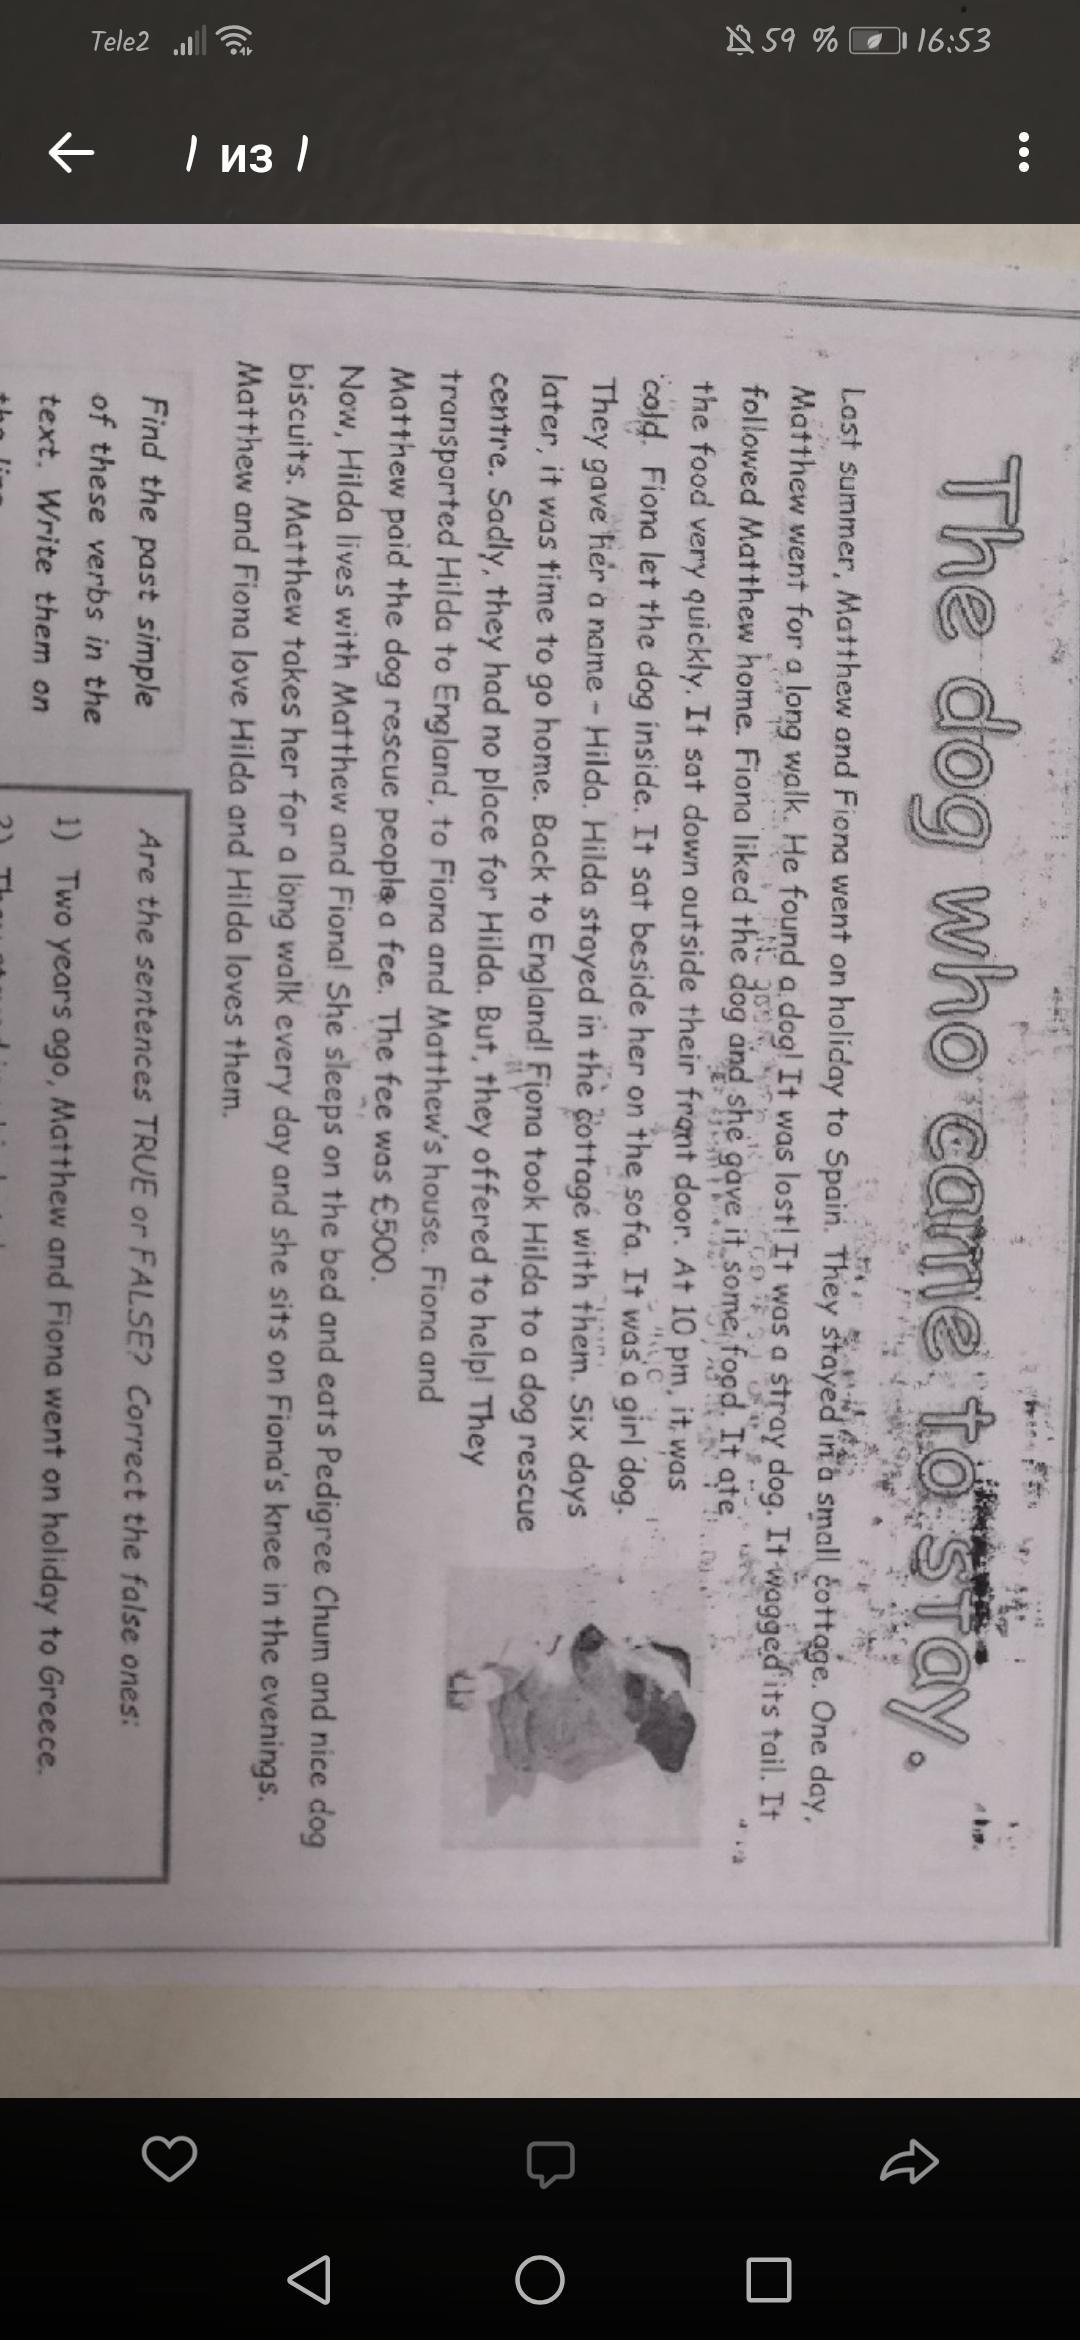 Tele2
59 % 16:53
1 из 1
The dog who came to stay.
Last summer, Matthew and Fiona went on holiday to Spain. They stayed in a small cottage. One day,
Matthew went for a long walk. He found a dog! It was lost! It was a stray dog. It wagged its tail. It
followed Matthew home. Fiona liked the dog and she gave it some food. It ate
the food very quickly. It sat down outside their front door. At 10 pm, it was
cold. Fiona let the dog inside. It sat beside her on the sofa. It was a girl dog.
They gave her a name – Hilda. Hilda stayed in the cottage with them. Six days
later, it was time to go home. Back to England! Fiona took Hilda to a dog rescue
centre. Sadly, they had no place for Hilda. But, they offered to help! They
transported Hilda to England, to Fiona and Matthew's house. Fiona and
Matthew paid the dog rescue people a fee. The fee was £500.
Now, Hilda lives with Matthew and Fiona! She sleeps on the bed and eats Pedigree Chum and nice dog
biscuits. Matthew takes her for a long walk every day and she sits on Fiona's knee in the evenings.
Matthew and Fiona love Hilda and Hilda loves them.
Find the past simple
of these verbs in the
text. Write them on
Are the sentences TRUE or FALSE? Correct the false ones:
1) Two years ago, Matthew and Fiona went on holiday to Greece.